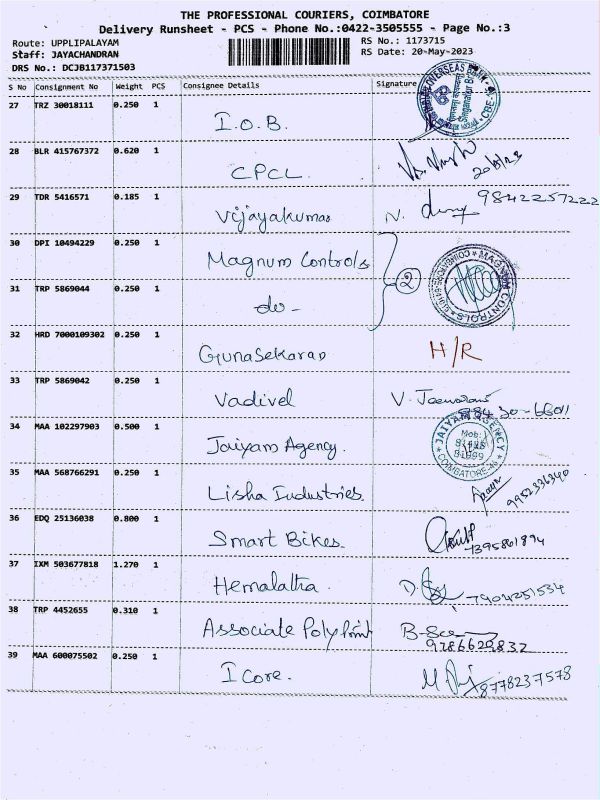 THE PROFESSIONAL COURIERS, COIMBATORE
Delivery Runsheet - PCS - Phone No.:0422-3505555 - Page No.:3
Route: UPPLIPALAYAM RS No.: 1173715
Staff: JAYACHANDRAN RS Date: 20-May-2023
DRS No.: DCJB117371503
S No Consignment No Weight PCS Consignee Details Signature
27 TRZ 30018111 0.250 1 I.O.B.
28 BLR 415767372 0.620 1 CPCL 20/5/23
29 TDR 5416571 0.185 1 Vijayakumar N. 9842257222
30 DPI 10494229 0.250 1 Magnum Controls
31 TRP 5869044 0.250 1 do- 2 MAGNUM CONTROLS
32 HRD 7000109302 0.250 1 Gunasekaran H/R
33 TRP 5869042 0.250 1 Vadivel V.
34 MAA 102297903 0.500 1 Jaiyam Agency. JAIYAM AGENCY COIMBATORE Mob:
35 MAA 568766291 0.250 1 Lisha Industries. 9952336340
36 EDQ 25136038 0.800 1 Smart Bikes. 7395861894
37 IXM 503677818 1.270 1 Hemalatha D. 7904251534
38 TRP 4452655 0.310 1 Associate Poly Point 9786629832
39 MAA 600075502 0.250 1 I Core. M 8778237578